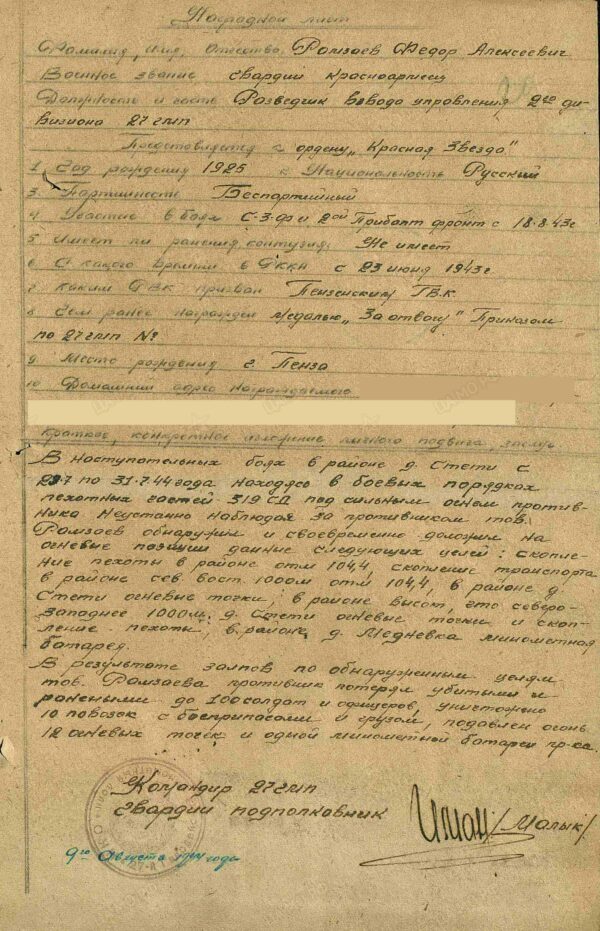 Наградной лист
Фамилия, имя, отчество Рамзаев Федор Алексеевич
Военное звание гвардии красноармеец
Должность и часть Разведчик взвода управления 2го ди-
визиона 27 гмп
Представляется к ордену „Красная Звезда"
1 Год рождения 1925 2 Национальность Русский
3 Партийность Беспартийный
4 Участие в боях С-З-Ф и 2ой Прибалт фронт с 18.8.43г
5 Имеет ли ранения, контузия: Не имеет
6 С какого времени в РККА с 23 июня 1943г
7 Каким ГВК призван Пензенским ГВК
8 Чем ранее награжден Медалью „За отвагу" Приказом
по 27 гмп №
9 Место рождения г. Пенза
10 Домашний адрес награждаемого
Краткое, конкретное изложение личного подвига, заслуг
В наступательных боях в районе д. Стети с
по 31.7.44 года находясь в боевых порядках
пехотных частей 319 СД под сильным огнем против-
ника Неустанно наблюдая за противником тов.
Рамзаев обнаружил и своевременно доложил на
огневые позиции данные следующих целей: скопле-
ние пехоты в районе отм 104,4, скопление транспорта
в районе сев. вост. 1000м отм 104,4, в районе д.
Стети огневые точки; в районе высот, что северо-
западнее 1000м. д. Стети огневые точки и скоп-
ление пехоты; в районе д. Медневка минометная
батарея.
В результате залпов по обнаруженным целям
тов. Рамзаева противник потерял убитыми и
ранеными до 100 солдат и офицеров, уничтожено
10 повозок с боеприпасами и грузом, подавлен огонь
12 огневых точек и одной минометной батареи пр-ка.
Командир 27 гмп
гвардии подполковник /Малык/
9го Августа 1944 года